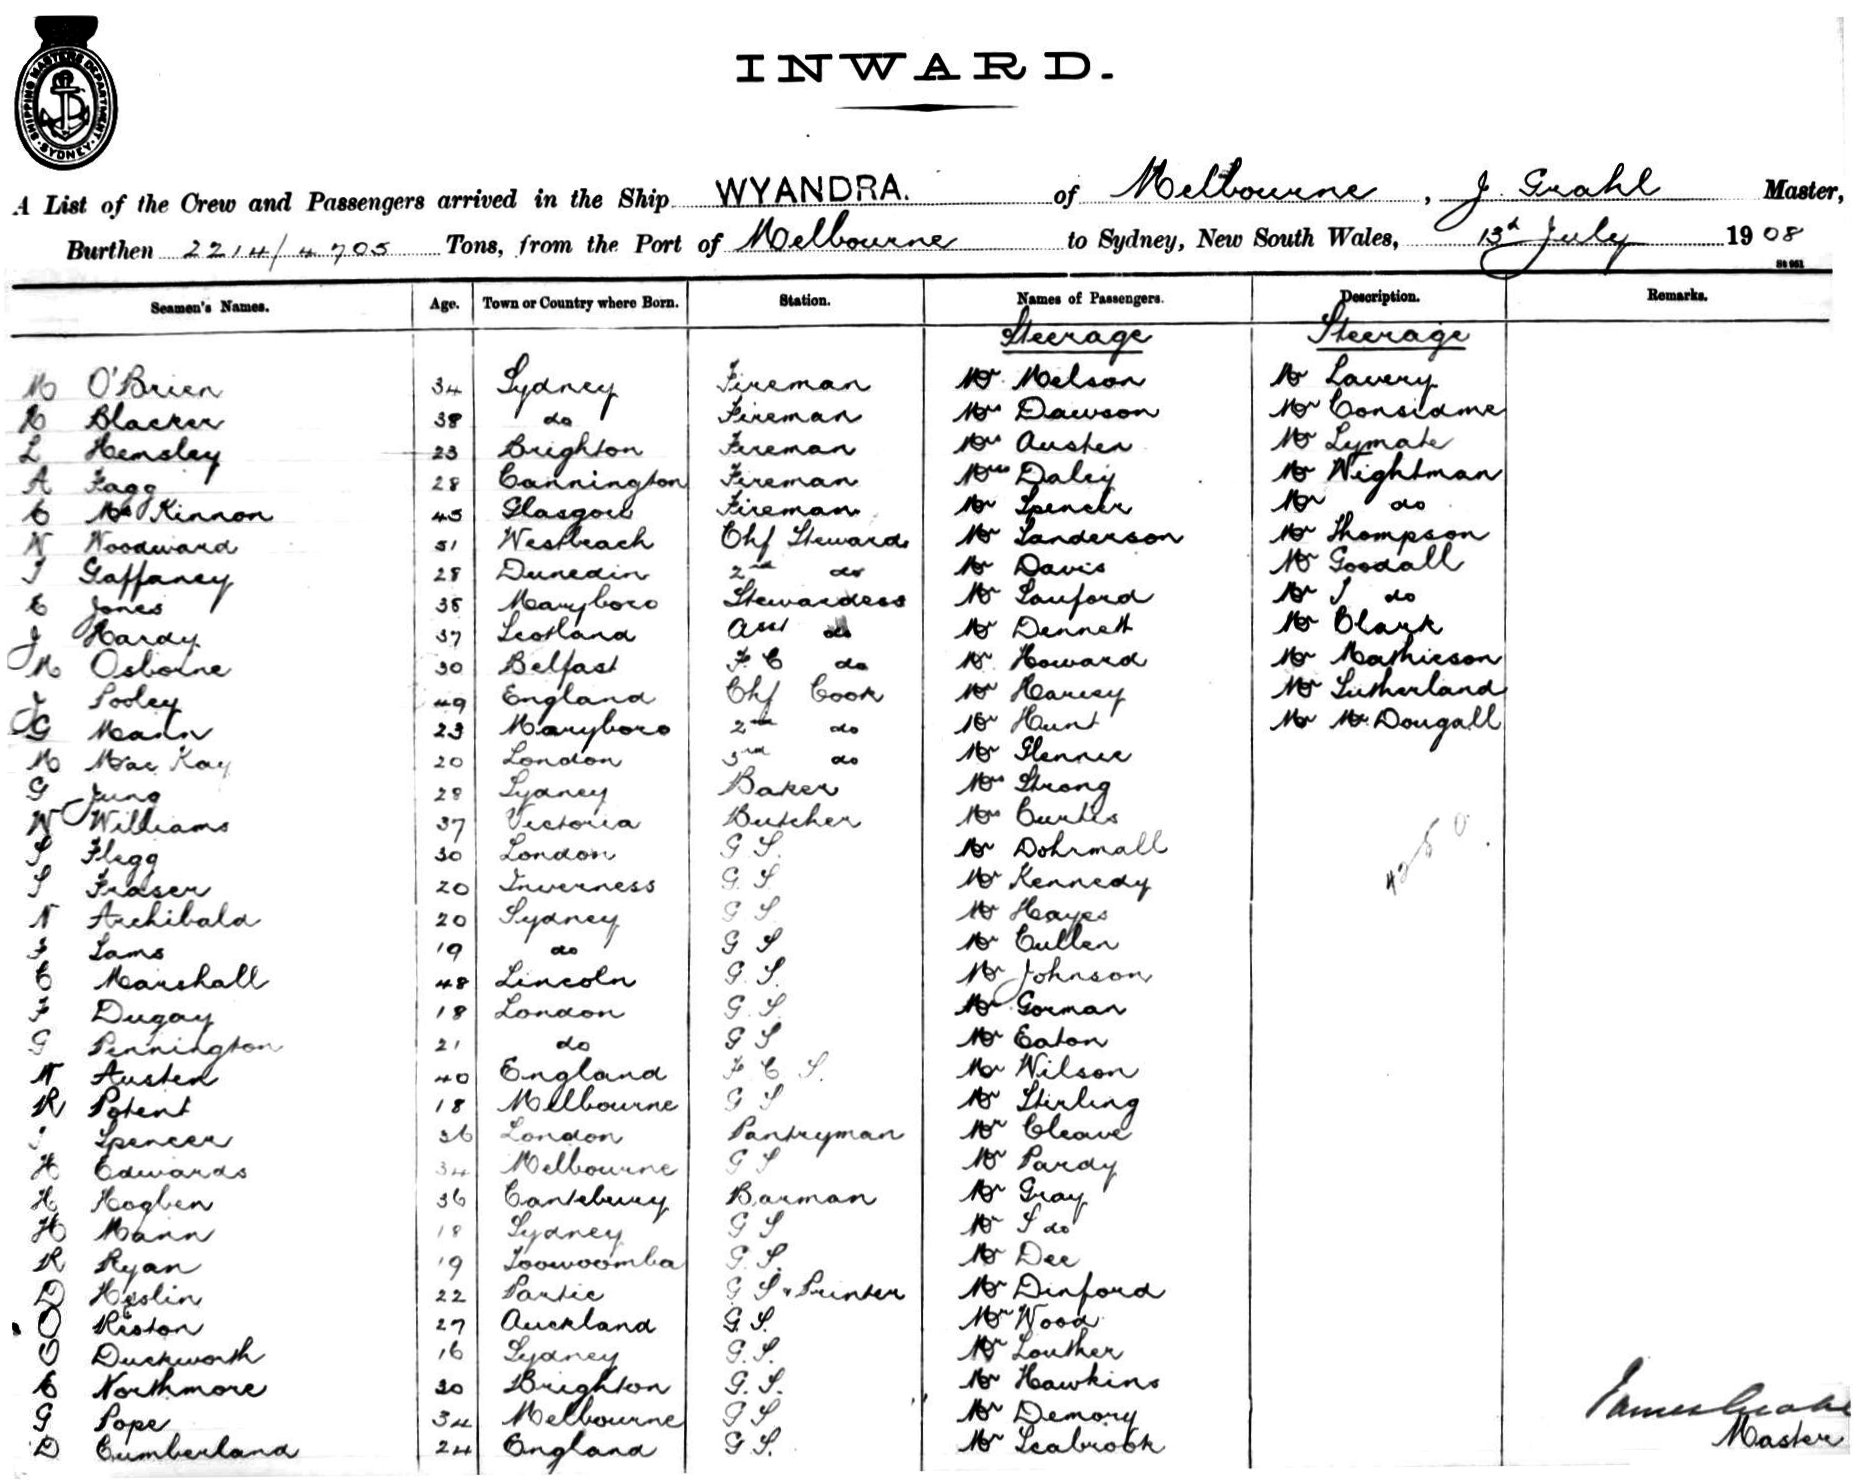 SHIPPING MASTERS DEPARTMENT · SYDNEY ·
INWARD.
A List of the Crew and Passengers arrived in the Ship WYANDRA. of Melbourne, J. Grahl Master,
Burthen 2214/4705 Tons, from the Port of Melbourne to Sydney, New South Wales, 13th July 1908
Seamen's Names. Age. Town or Country where Born. Station. Names of Passengers. Description. Remarks.
Steerage Steerage
M O'Brien 34 Sydney Fireman Mr Melson Mr Lavery
R Blacker 38 do Fireman Mrs Dawson Mr Considine
L Hemsley 23 Brighton Fireman Mrs Austen Mr Lymate
A Fagg 28 Cannington Fireman Mrs Daley Mr Wightman
C McKinnon 45 Glasgow Fireman Mr Spencer Mr do
N Woodward 51 Westbeach Chf Steward Mr Sanderson Mr Thompson
J Gaffaney 28 Dunedin 2nd do Mr Davis Mr Goodall
E Jones 38 Maryboro Stewardess Mr Lauford Mr J do
J Hardy 37 Scotland Asst do Mr Dennett Mr Clark
M Osborne 30 Belfast F C do Mr Howard Mr Mathieson
J Pooley 49 England Chf Cook Mr Harvey Mr Sutherland
G Mann 23 Maryboro 2nd do Mr Hunt Mr McDougall
M MacKay 20 London 3rd do Mr Glennie
G Jung 28 Sydney Baker Mrs Strong
W Williams 37 Victoria Butcher Mrs Curtis
S Flegg 30 London G S. Mr Dohrmall
S Fraser 20 Inverness G. S Mr Kennedy
N Archibald 20 Sydney G S Mr Hayes
F Lams 19 do G S Mr Cullen
C Marshall 48 Lincoln G. S. Mr Johnson
F Dugay 18 London G. S Mr Gorman
G Pennington 21 do G S Mr Eaton
N Austen 40 England F C S. Mr Wilson
R Potent 18 Melbourne G S Mr Stirling
Spencer 36 London Pantryman Mr Cleave
H Edwards 34 Melbourne G S Mr Pardy
H Hogben 36 Cantebury Barman Mr Gray
H Mann 18 Sydney G S Mr S do
R Ryan 19 Toowoomba G. S. Mr Dee
D Heslin 22 Partic G S & Printer Mr Dinford
O Riston 27 Auckland G. S. Mr Wood
O Duckworth 16 Sydney G. S. Mr Louther
C Northmore 30 Brighton G. S. Mr Hawkins
G Pope 34 Melbourne G S Mr Demory
D Cumberland 24 England G S. Mr Seabrook
4250
James Grahl
Master